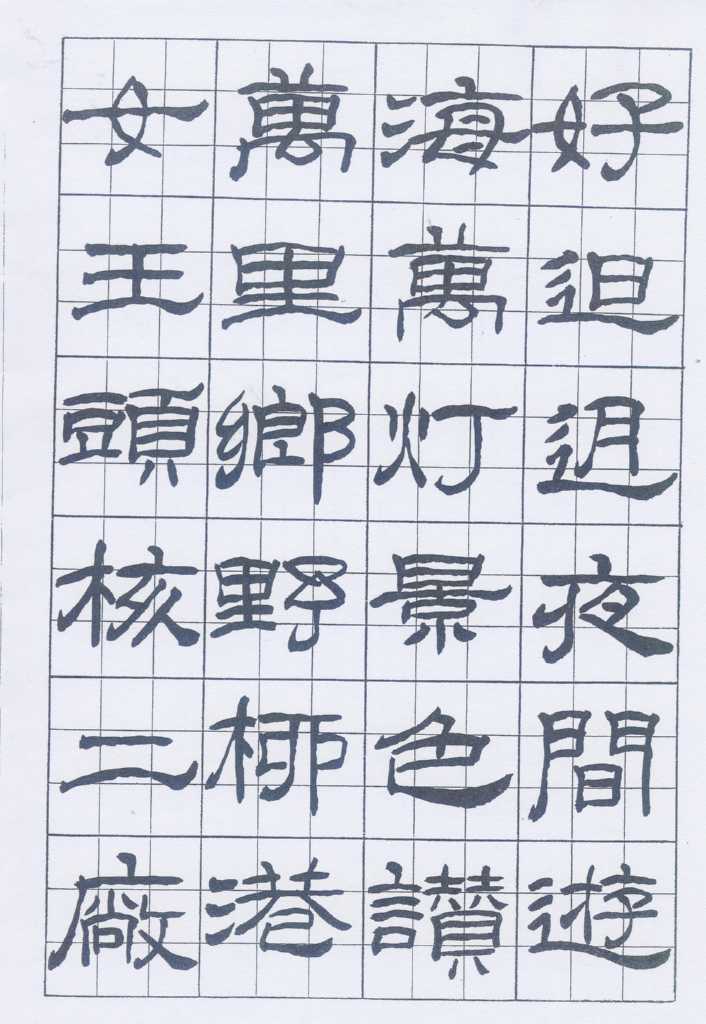 好𨑨迌夜間遊
海萬灯景色讚
萬里鄉野柳港
女王頭核二廠